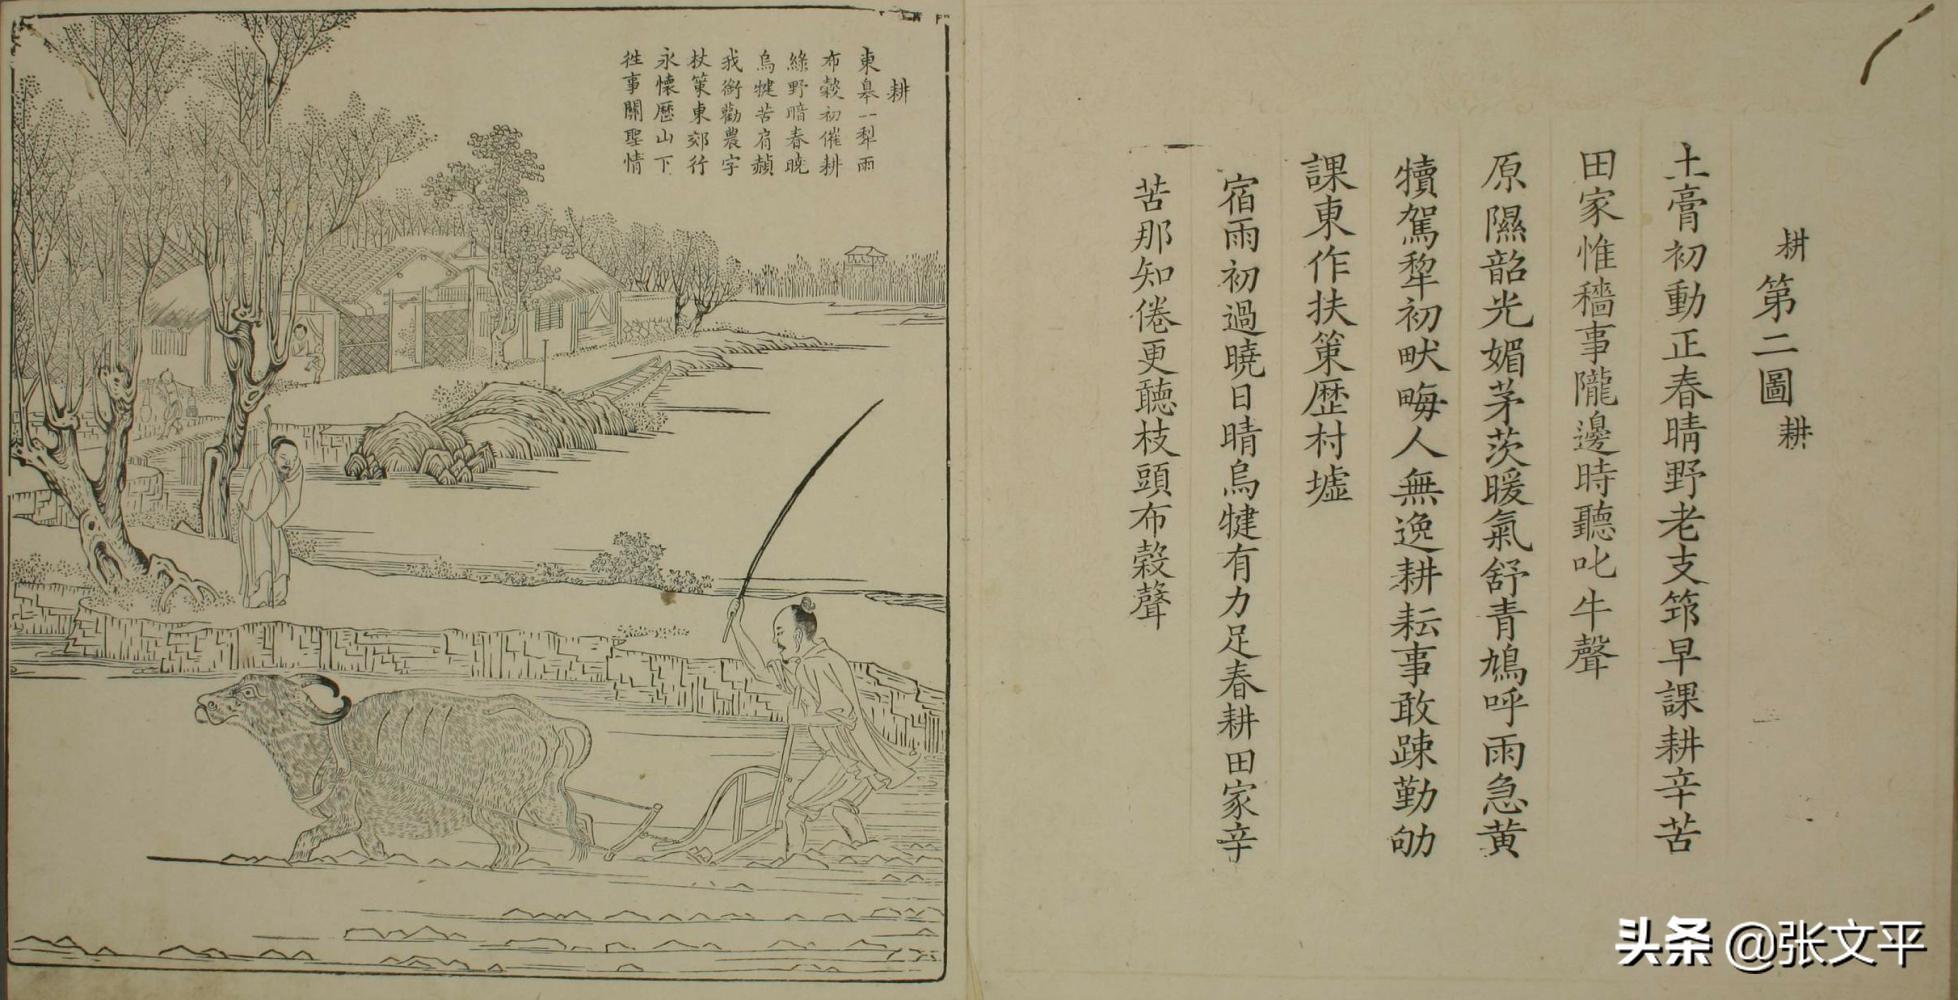 耕第二圖耕
土膏初動正春晴野老支筇早課耕辛苦
田家惟穡事隴邊時聽叱牛聲
原隰韶光媚茅茨暖氣舒青鳩呼雨急黃
犢駕犂初畎畮人無逸耕耘事敢踈勤劬
課東作扶策歷村墟
宿雨初過曉日晴烏犍有力足春耕田家辛
苦那知倦更聽枝頭布穀聲
耕
東皋一犂雨
布穀初催耕
綠野暗春曉
烏犍苦肩赬
我銜勸農字
杖策東郊行
永懷歷山下
徃事關聖情
头条 @张文平